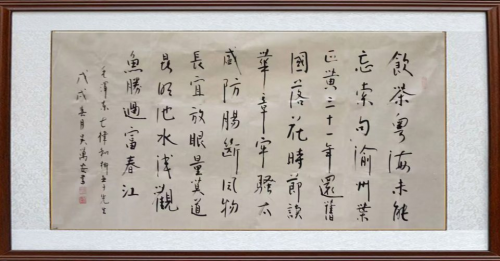 飲茶粵海未能
忘索句渝州葉
正黄三十一年還舊
國落花時節讀
華章牢騷太
盛防腸斷風物
長宜放眼量莫道
昆明池水淺觀
魚勝過富春江
毛澤東七律和柳亞子先生
戊戌